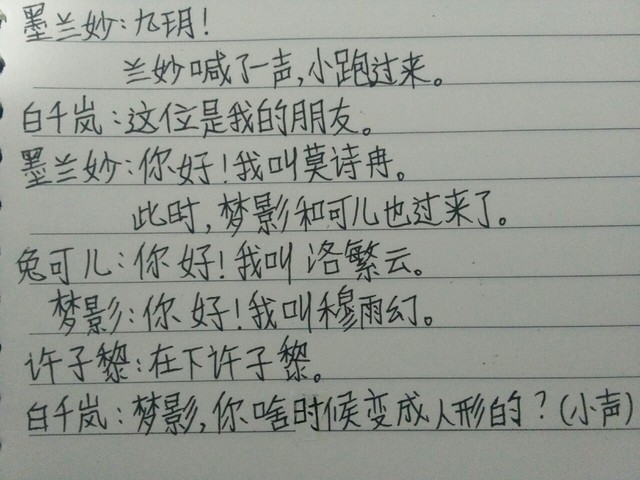 墨兰妙:九玥!
兰妙喊了一声,小跑过来。
白千岚:这位是我的朋友。
墨兰妙:你好!我叫莫诗冉。
此时,梦影和可儿也过来了。
兔可儿:你好!我叫洛繁云。
梦影:你好!我叫穆雨幻。
许子黎:在下许子黎。
白千岚:梦影,你啥时候变成人形的?(小声)